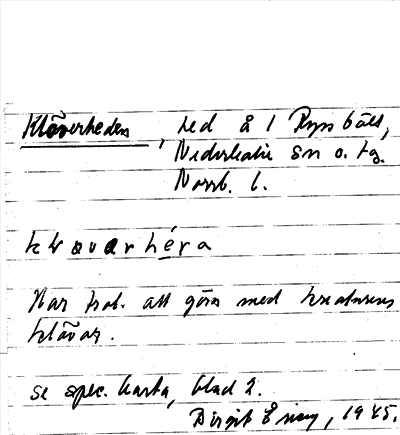 Klöverheden, hed å 1 Ryssbält,
Nederkalix sn o. tg.
Norrb. l.
Har trol. att göra med kreaturens
klövar.
se spec. karta, blad 2.
Birgit Ering, 1945.